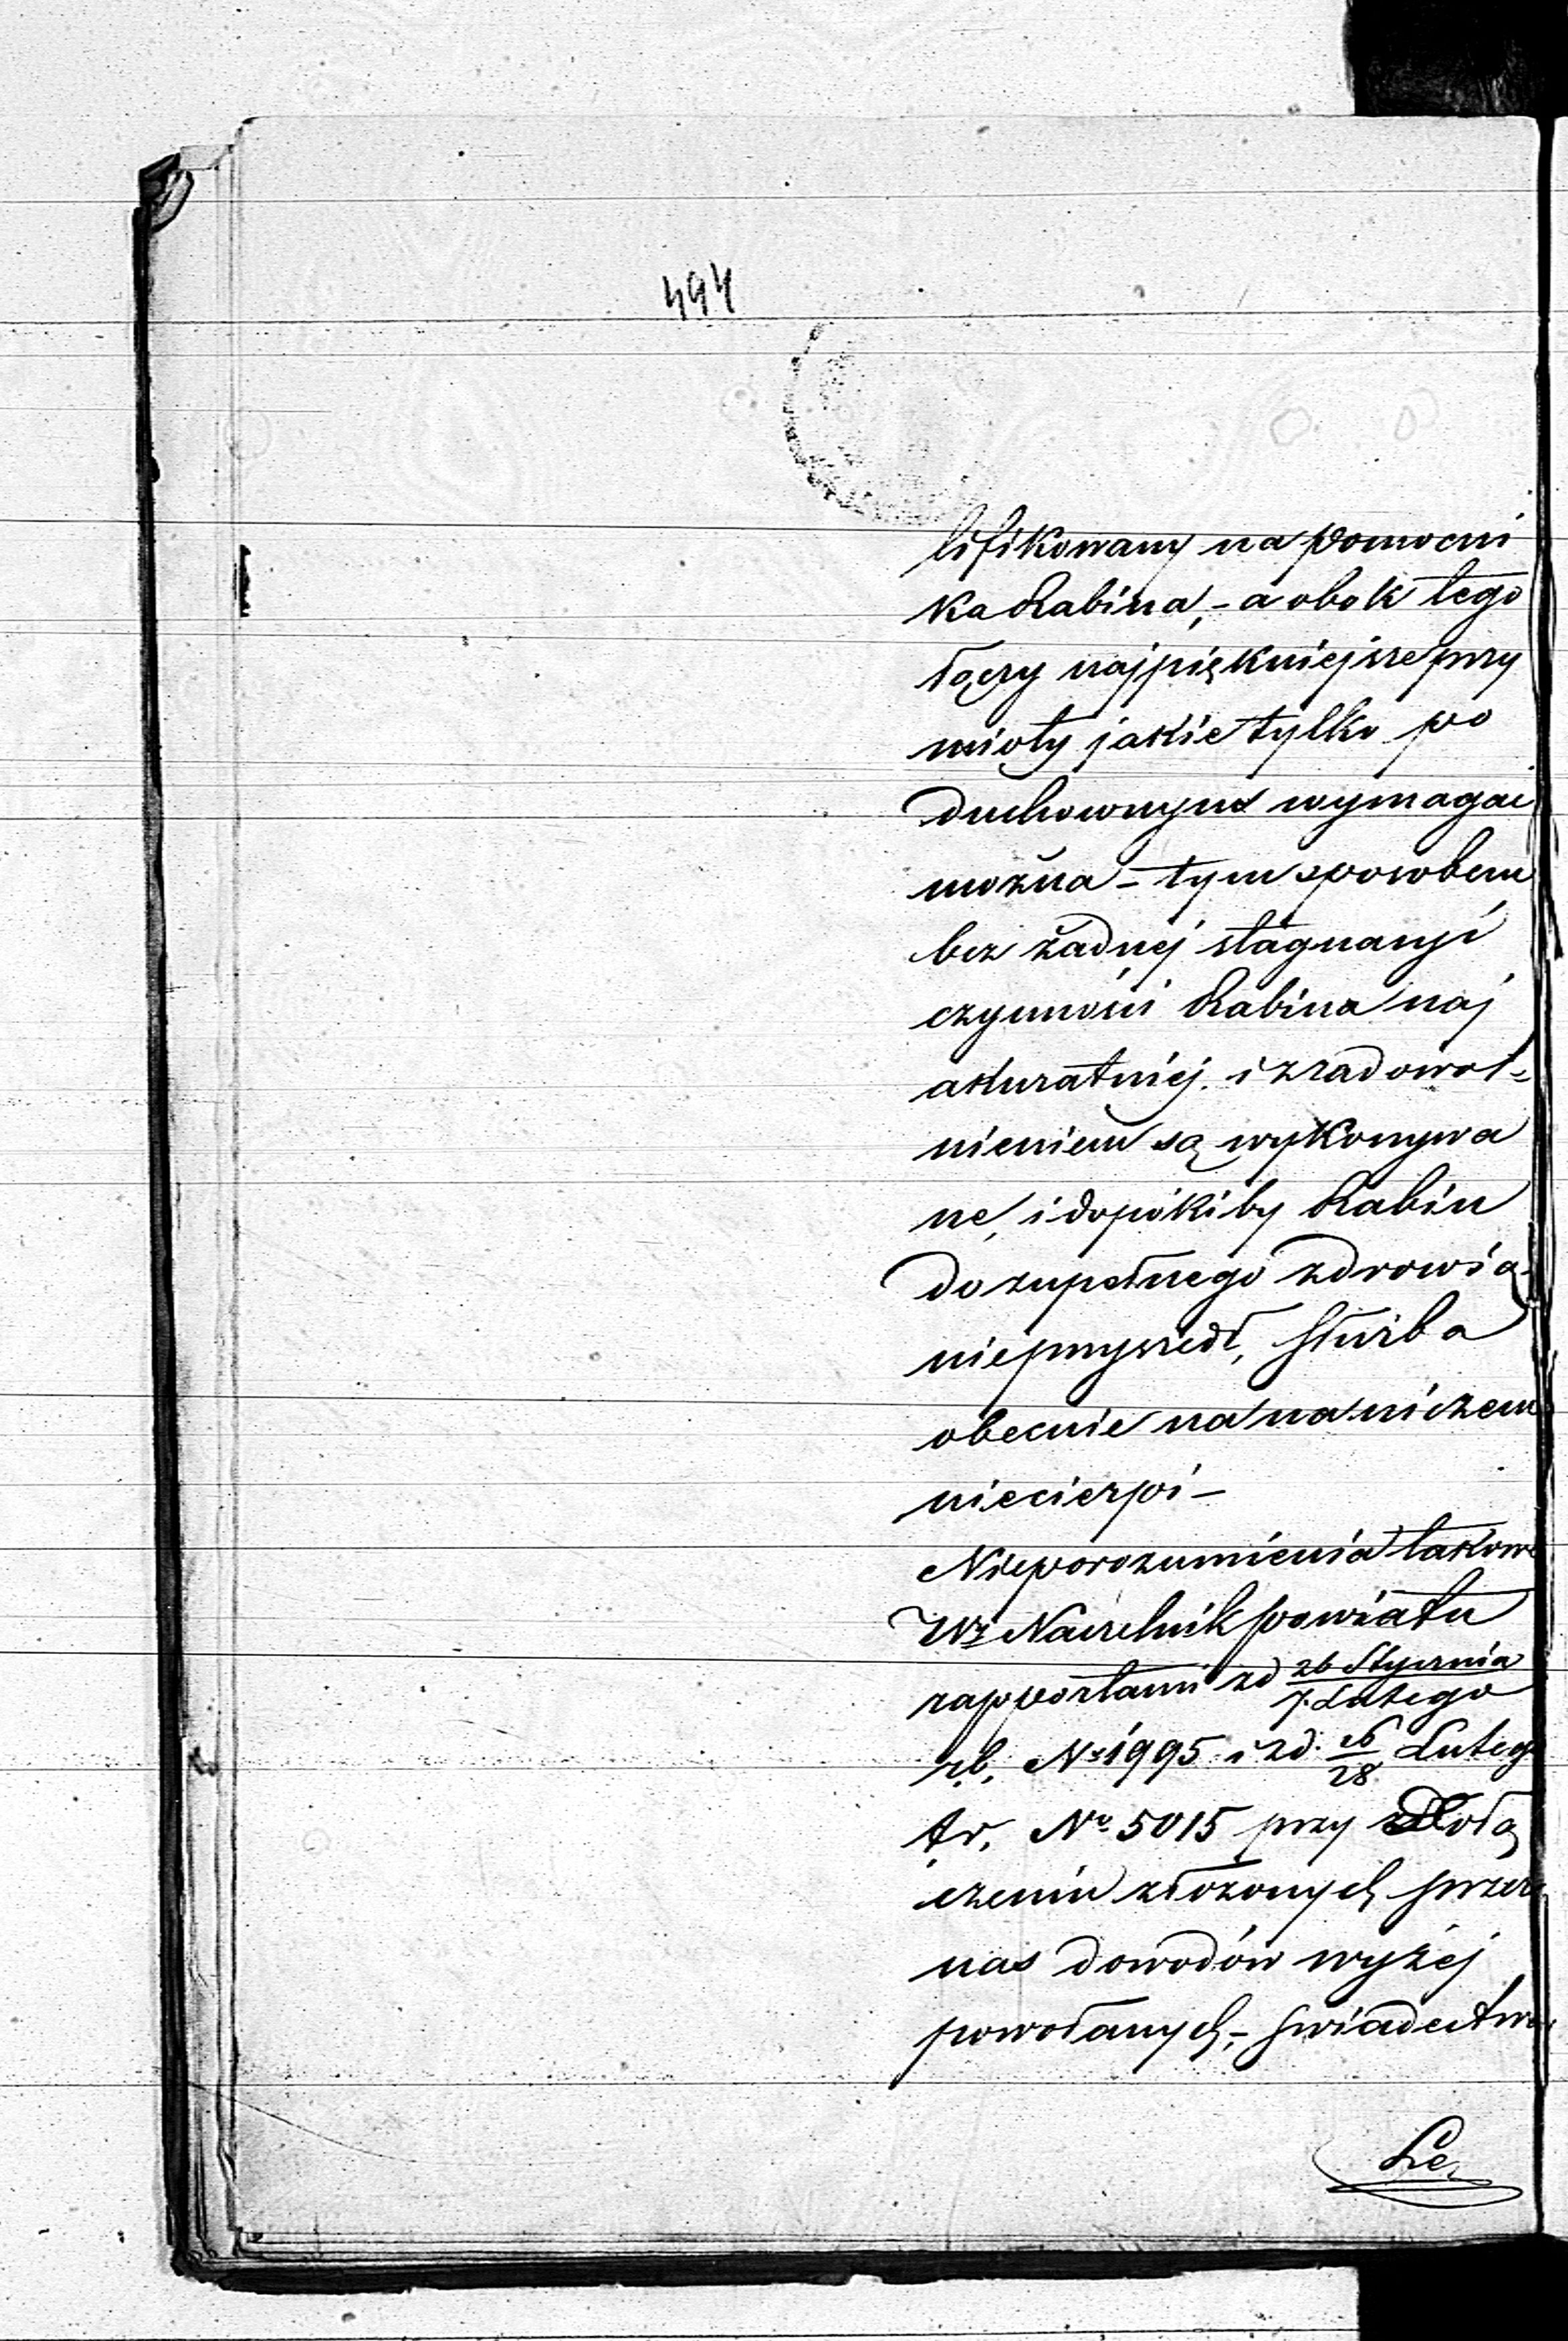 494
lifikowany na pomocni
ka Rabina, - a obok tego
łączy najpiękniejsze przy
mioty jakie tylko po
duchownym wymagać
można - tym sposobem
bez żadnej stagnacyi
czynności Rabina naj
akuratniej i z zadowol=
nieniem są wykonywa
ne, i dopókiby Rabin
do zupełnego zdrowia
nieprzyszedł, służba
obecnie na na niczem
niecierpi -
Nieporozumienia takowe
Wż Naczelnik powiatu
rapportami zd 26 Stycznia / 7. Lutego
rb. No 1995 i zd. 16/28 Lutego
tr. No 5015 przy dołą
czeniu złożonych przez
nas dowodów wyżej
powołanych, - świadectwa